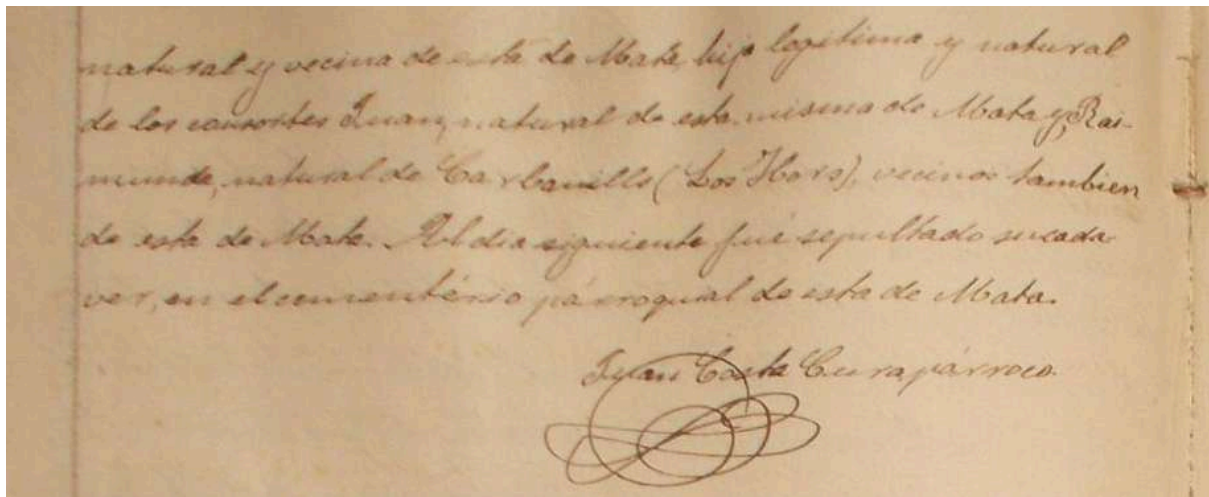 natural y vecina de esta de Mata, hija legitima y natural
de los consortes Juan, natural de esta misma de Mata y Rai-
munda, natural de (Los Hors), vecinos tambien
de esta de Mata. Al dia siguiente fué sepultado su cada-
ver, en el cementério párroquial de esta de Mata.
Juan Costa Cura párroco.